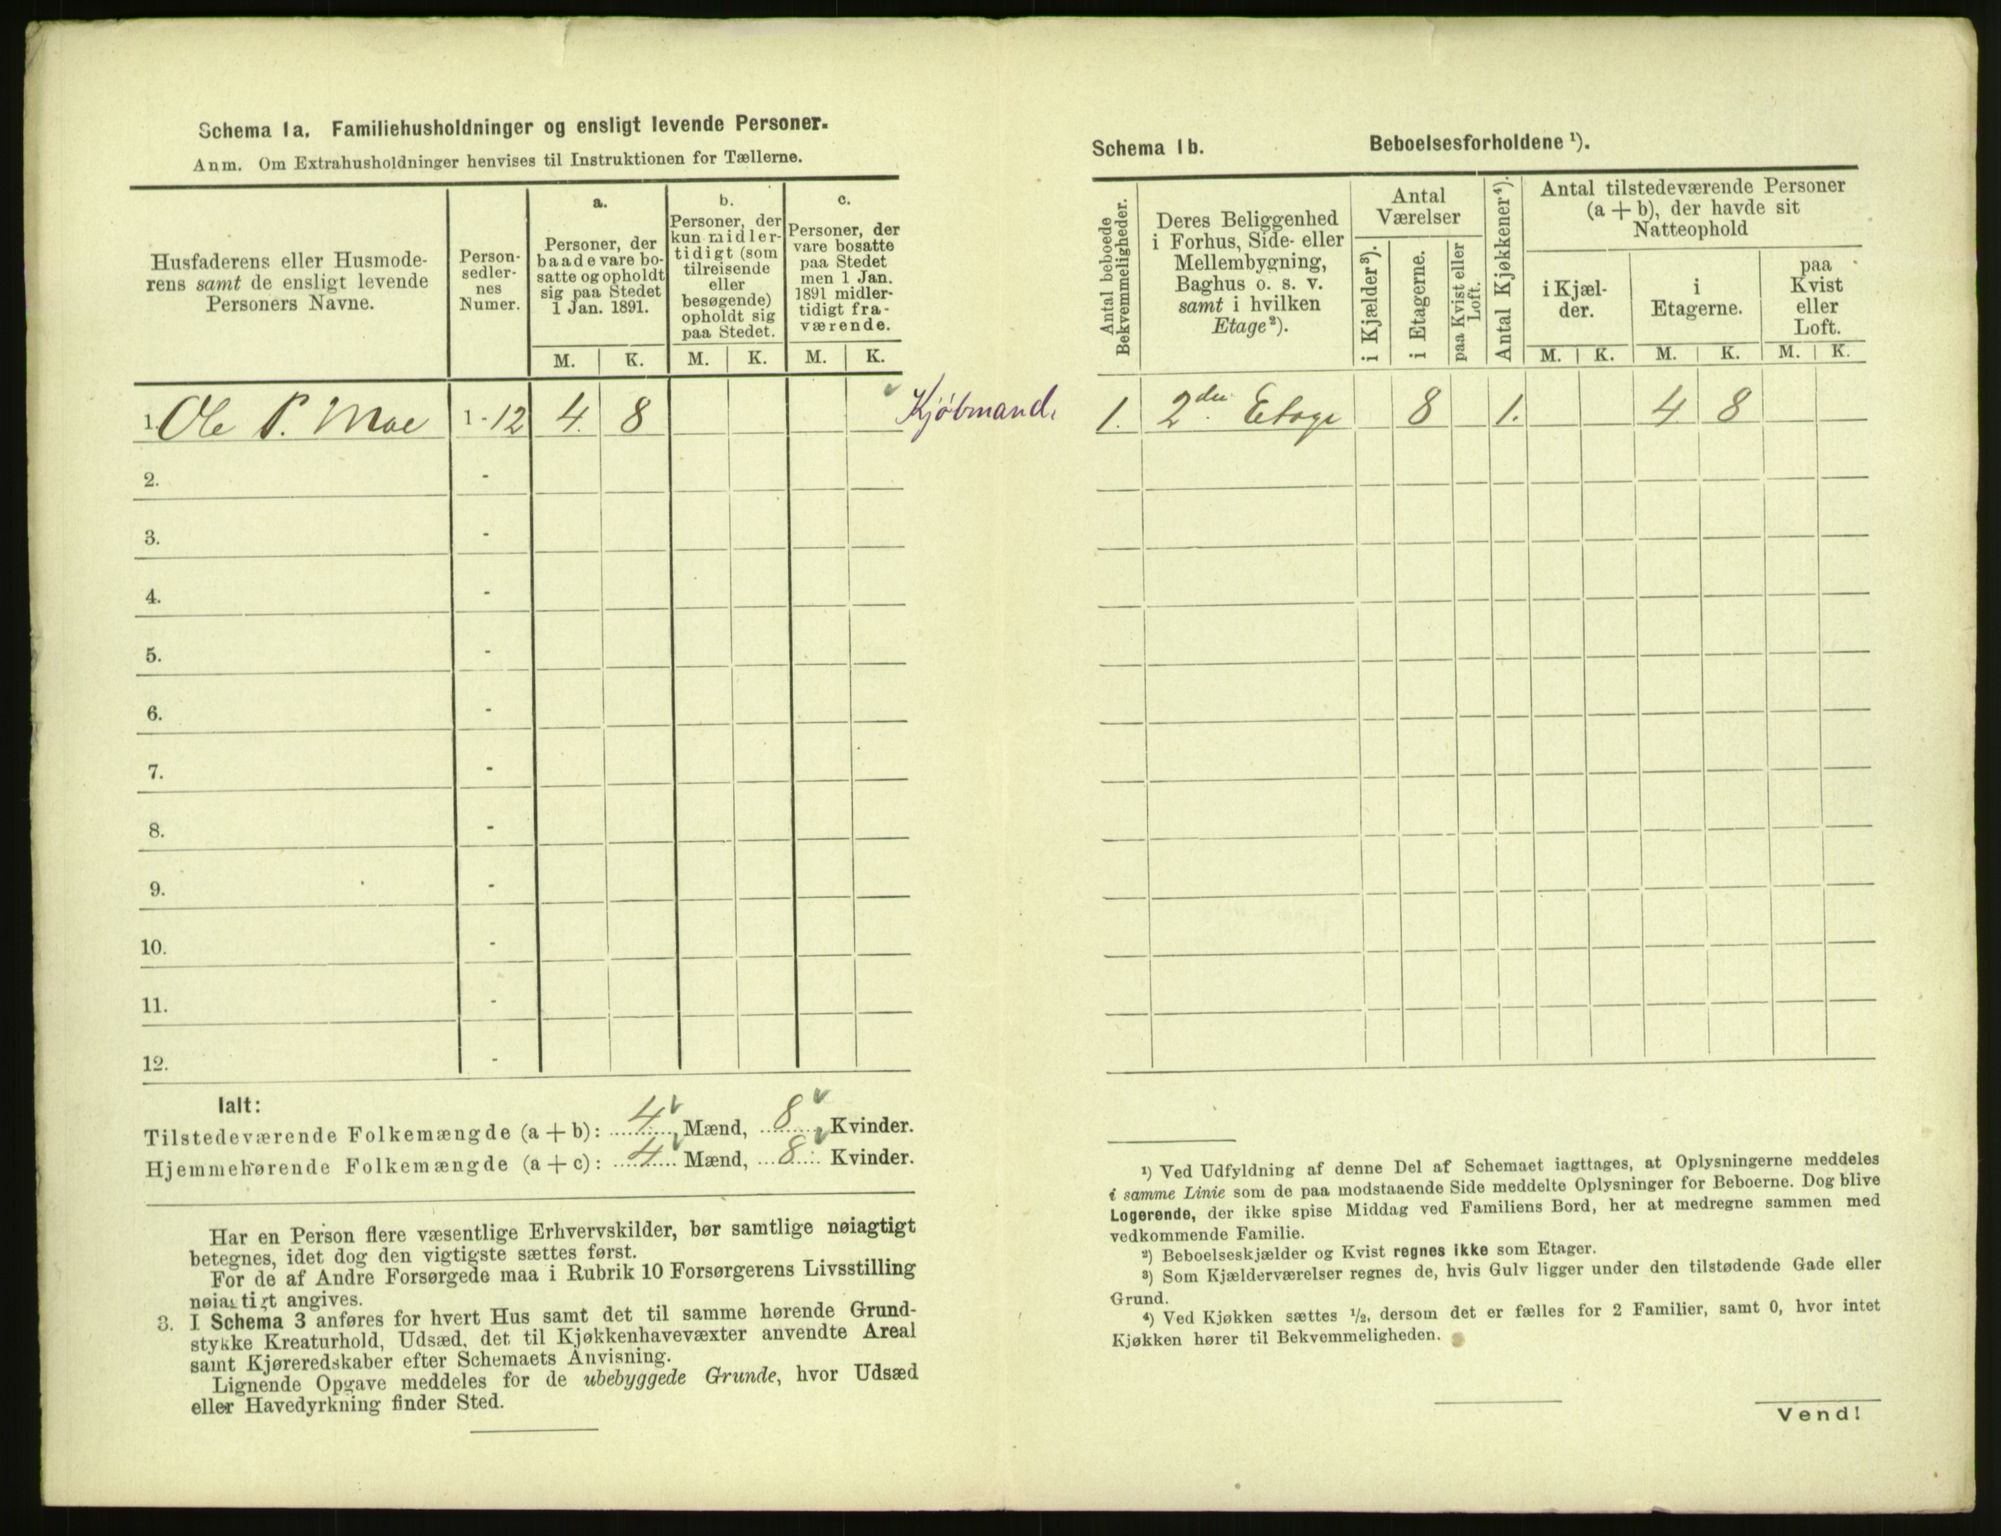 Schema 1a. Familiehusholdninger og ensligt levende Personer.
Anm. Om Extrahusholdninger henvises til Instruktionen for Tællerne.
Husfaderens eller Husmode-
rens samt de ensligt levende
Personers Navne.
Person-
sedler-
nes
Numer.
a.
Personer, der
baade vare bo-
satte og opholdt
sig paa Stedet
1 Jan. 1891.
b.
Personer, der
kun midler-
tidigt (som
tilreisende
eller
besøgende)
opholdt sig
paa Stedet.
c.
Personer, der
vare bosatte
paa Stedet
men 1 Jan.
1891 midler-
tidigt fra-
værende.
M. K. M. K. M. K.
1. Ole P. Moe 1-12 4. 8 Kjøbmand.
2. -
3. -
4. -
5. -
6. -
7. -
8. -
9. -
10. -
11. -
12. -
Ialt:
Tilstedeværende Folkemængde (a + b): 4 Mænd, 8 Kvinder.
Hjemmehørende Folkemængde (a + c): 4 Mænd, 8 Kvinder.
Har en Person flere væsentlige Erhvervskilder, bør samtlige nøiagtigt
betegnes, idet dog den vigtigste sættes først.
For de af Andre Forsørgede maa i Rubrik 10 Forsørgerens Livsstilling
nøiagtigt angives.
3. I Schema 3 anføres for hvert Hus samt det til samme hørende Grund-
stykke Kreaturhold, Udsæd, det til Kjøkkenhavevæxter anvendte Areal
samt Kjøreredskaber efter Schemaets Anvisning.
Lignende Opgave meddeles for de ubebyggede Grunde, hvor Udsæd
eller Havedyrkning finder Sted.
Schema 1b. Beboelsesforholdene ¹).
Antal beboede
Bekvemmeligheder.
Deres Beliggenhed
i Forhus, Side- eller
Mellembygning,
Baghus o. s. v.
samt i hvilken
Etage²).
Antal
Værelser
i Kjælder³).
i Etagerne.
paa Kvist eller
Loft.
Antal Kjøkkener⁴).
Antal tilstedeværende Personer
(a + b), der havde sit
Natteophold
i Kjæl-
der.
i
Etagerne.
paa
Kvist
eller
Loft.
M. K. M. K. M. K.
1. 2den Etage 8 1. 4. 8
¹) Ved Udfyldning af denne Del af Schemaet iagttages, at Oplysningerne meddeles
i samme Linie som de paa modstaaende Side meddelte Oplysninger for Beboerne. Dog blive
Logerende, der ikke spise Middag ved Familiens Bord, her at medregne sammen med
vedkommende Familie.
²) Beboelseskjælder og Kvist regnes ikke som Etager.
³) Som Kjælderværelser regnes de, hvis Gulv ligger under den tilstødende Gade eller
Grund.
⁴) Ved Kjøkken sættes ½, dersom det er fælles for 2 Familier, samt 0, hvor intet
Kjøkken hører til Bekvemmeligheden.
Vend!